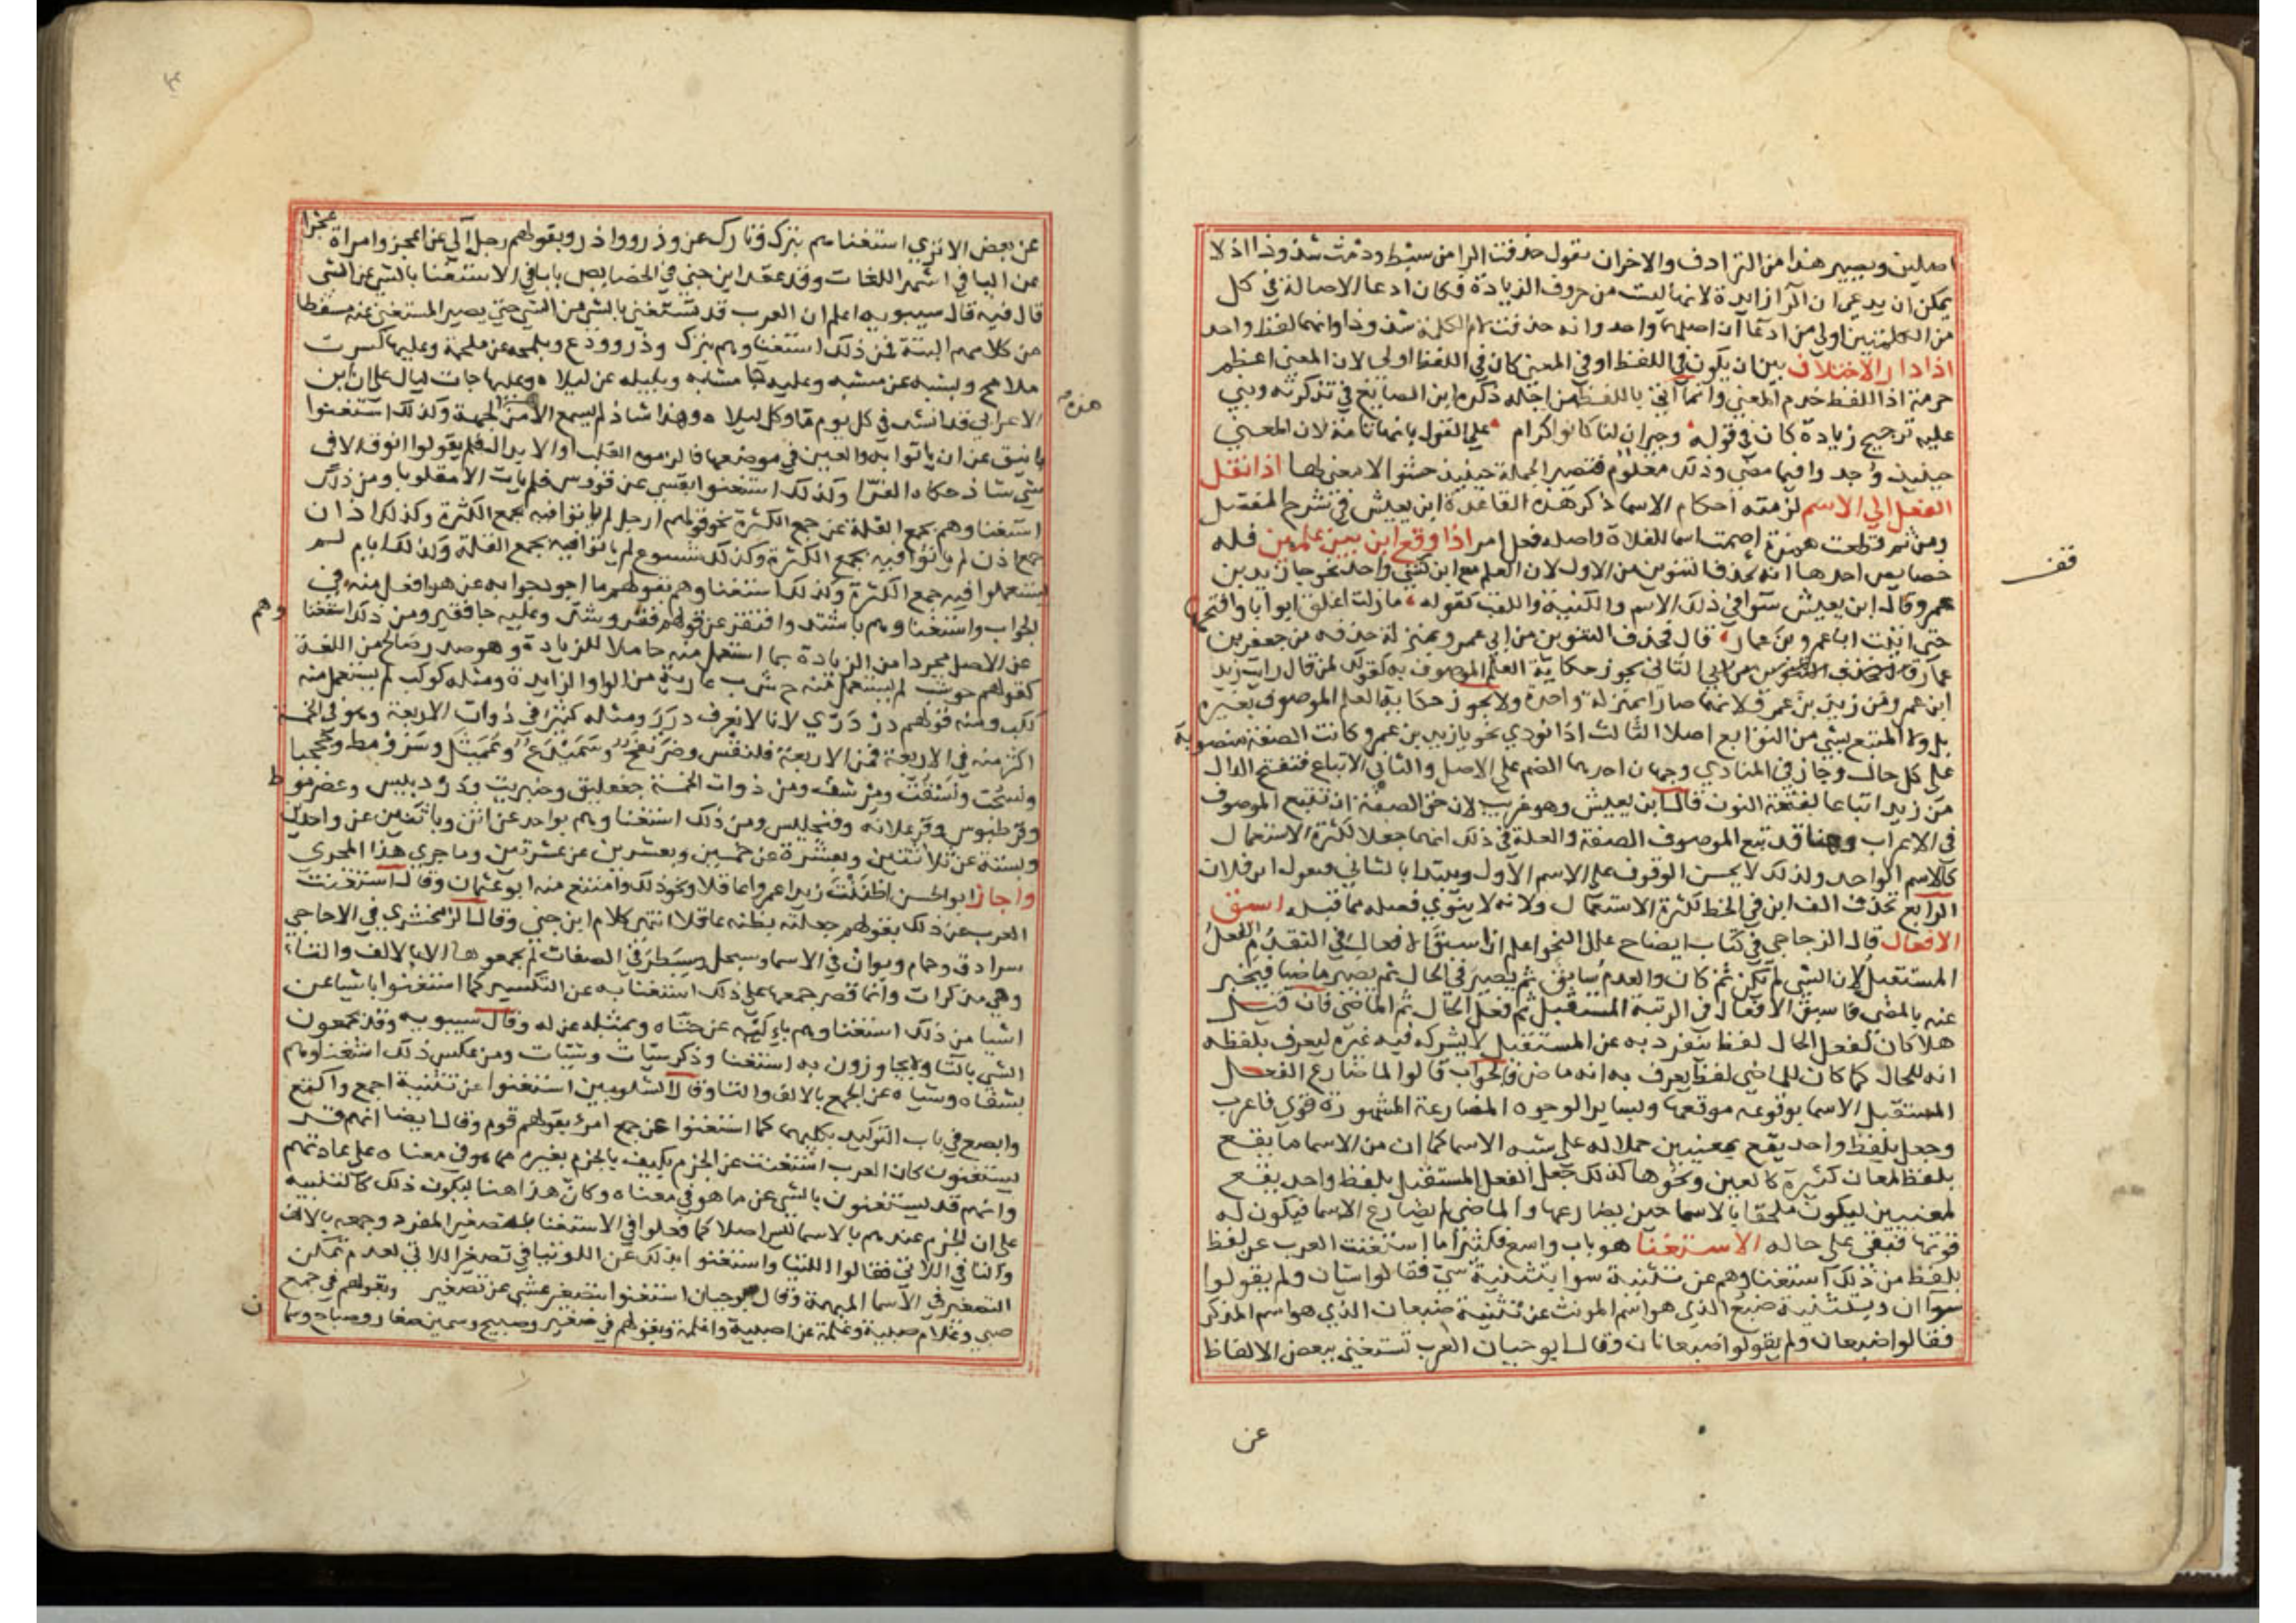 اصلين ويصير هذا من الترادف والاخران نقول حذفت الرا من سبط ودمث شذوذا اذ لا
يمكن ان يدعي ان الرا زايدة لانها ليست من حروف الزيادة فكان ادعا الاصالة في كل
من الكلمتين اولي من ادعا ان اصلهما واحد وانه حذفت لام الكلمة شذوذا وانهما لفظ واحد
اذا دار الاختلاف بين ان يكون في اللفظ او في المعني كان في اللفظ اولي لان المعني اعظم
حرمة اذ اللفظ خدم المعني وانما اتي باللفظ من اجله ذكره ابن الصايغ في تذكرته وبني
عليه ترجيح زيادة كان في قوله وجيران لنا كانوا كرام علي القول بانها تامة لان المعني
حينيذ وجدوا فيما مضي وذلك معلوم فتصير الجملة حينيذ حشوا لا معني لها اذا نقل
الفعل الي الاسم لزمته احكام الاسما ذكر هذه القاعدة ابن يعيش في شرح المفصل
ومن ثم قطعت همزة اصمت اسما للفلاة واصله فعل امر اذا وقع ابن بين علمين فله
خصايص احدها انه يحذف التنوين من الاول لان العلم مع ابن كشي واحد نحو جا زيد بن
عمرو قال ابن يعيش سوا في ذلك الاسم والكنية واللقب كقوله ما زلت اغلق ابوابا وافتحها
حتي اتيت ابا عمرو بن عمار قال فحذف التنوين من ابي عمرو بمنزلة حذفه من جعفر بن
عمار الثاني يجوز حكاية العلم الموصوف به كقولك لمن قال رايت زيد
ابن عمرو من زيد بن عمرو لانهما صارا بمنزلة واحدة ولا يجوز حكاية العلم الموصوف بغيره
بل ولا المتبع بشي من التوابع اصلا الثالث اذا نودي نحو يا زيد بن عمرو كانت الصفة منصوبة
علي كل حال وجاز في المنادي وجهان احدهما الضم علي الاصل والثاني الاتباع فتفتح الدال
من زيد اتباعا لفتحة النون قال ابن يعيش وهو غريب لان حق الصفة ان تتبع الموصوف
في الاعراب وهنا قد تبع الموصوف الصفة والعلة في ذلك انهما جعلا لكثرة الاستعمال
كالاسم الواحد ولذلك لا يحسن الوقوف علي الاسم الاول ويبتدا بالثاني فيقول ابن فلان
الرابع تحذف الف ابن في الخط لكثرة الاستعمال ولانه لا ينوي فصله مما قبله اسبق
الافعال قال الزجاجي في كتاب ايضاح علل النحو اعلم ان اسبق الافعال في التقدم الفعل
المستقبل لان الشي لم يكن ثم كان والعدم سابق ثم يصير في الحال ثم يصير ماضيا فيخبر
عنه بالمضي فاسبق الافعال في الرتبة المستقبل ثم فعل الحال ثم الماضي فان قيل
هلا كان لفعل الحال لفظ ينفرد به عن المستقبل لا يشركه فيه غيره ليعرف بلفظه
انه للحال كما كان للماضي لفظ يعرف به انه ماض فالجواب قالوا لما ضارع الفعل
المستقبل الاسما بوقوعه موقعها وبساير الوجوه المضارعة المشهورة قوي فاعرب
وجعل بلفظ واحد يقع بمعنيين حملا له علي شبه الاسما كما ان من الاسما ما يقع
بلفظ لمعان كثيرة كالعين ونحوها كذلك جعل الفعل المستقبل بلفظ واحد يقع
لمعنيين ليكون ملحقا بالاسما حين يضارعها والماضي لم يضارع الاسما فيكون له
قوتها فبقي علي حاله الاستغنا هو باب واسع فكثيرا ما استغنت العرب عن لفظ
بلفظ من ذلك استغناوهم عن تثنية سوا بتثنية سي فقالوا سيان ولم يقولوا
سوآان وبتثنية ضبع الذي هو اسم المونث عن تثنية ضبعان الذي هو اسم المذكر
فقالوا ضبعان ولم يقولوا ضبعانان وقال ابو حيان العرب تستغني ببعض الالفاظ
عن
قف
عن بعض الا تري استغناهم بترك وتارك عن وذر وواذر وبقولهم رجل آلي عن اعجز وامراة عجزا
عن اليا في اشهر اللغات وقد عقد ابن جني في الخصايص بابا في الاستغنا بالشي عن الشي
قال فيه قال سيبويه اعلم ان العرب قد تستغني بالشي عن الشي حتي يصير المستغني عنه مسقطا
من كلامهم البتة فمن ذلك استغناوهم بترك وذر وودع وبلمحه عن ملمحة وعليها كسرت
ملامح وبشبه عن مشبه وعليه جا مشابه وبليله عن ليلاه وعليها جات ليال علي ان ابن
الاعرابي قد انشد في كل يوم ما وكل ليلاه وهذا شاذ لم يسمع الا من الجهة وكذلك استغنوا
هذه
باينق عن ان ياتوا به والعين في موضعها فالزموه القلب او الابدال فلم يقولوا انوق الا في
شي شاذ حكاه الفرا وكذلك استغنوا بقسي عن قووس فلم يات الا مقلوبا ومن ذلك
استغناوهم بجمع القلة عن جمع الكثرة نحو قولهم ارجل لم ياتوا فيه بجمع الكثرة وكذلك اذان
جمع اذن لم ياتوا فيه بجمع الكثرة وكذلك شسوع لم ياتوا فيه بجمع القلة وكذلك ايام لم
يستعملوا فيه جمع الكثرة وكذلك استغناوهم بقولهم ما اجود جوابه عن هو افعل منه في
الجواب واستغناوهم باشتد وافتقر عن قولهم فقر وشد وعليه جا فقير ومن ذلك استغنا وهم
عن الاصل مجردا من الزيادة بما استعمل منه حاملا للزيادة وهو صدر صالح من اللغة
كقولهم حوشب لم يستعمل منه حشب عارية من الواو الزايدة ومثله كوكب لم يستعمل منه
ككب ومنه قولهم دودري لانا لا نعرف ددر ومثله كثير في ذوات الاربعة وهو في الخمسة
اكثر منه في الاربعة فمن الاربعة فلنقس وسميدع وعميثل وسرومط وجحجبا
ومن ذوات الخمسة جعفليق وحنبريت ودردبيس وعضرفوط
وقرطبوس وقرعبلانه وفنجليس ومن ذلك استغناوهم بواحد عن اثن وباثنين عن واحدين
وبستة عن ثلاثتين وبعشرة عن خمسين وبعشرين عن عشرتين وما جري هذا المجري
واجاز ابو الحسن اظننت زيدا عمرا عاقلا ونحو ذلك وامتنع منه ابو عثمان وقال استغنت
العرب عن ذلك بقولهم جعلته يظنه عاقلا انتهي كلام ابن جني وقال الزمخشري في الاحاجي
سرادق وحمام وبوان في الاسما وسبحل وسبطر في الصفات لم يجمعوها الا بالالف والتا
وهي مذكرات وانما قصر جمعها علي ذلك استغنا به عن التكسير كما استغنوا باشيا عن
اشيا من ذلك استغناوهم باليه عن حتاه وبمثله عن له وقال سيبويه وقد يجمعون
الشي بالتا ولا يجاوزون به استغنا وذكر سيات وشيات ومن عكس ذلك استغناوهم
بشفاه وشياه عن الجمع بالالف والتا وقال الشلوبين استغنوا عن تثنية اجمع واكتع
وابصع في باب التوكيد بكليهما كما استغنوا عن جمع امرئ بقولهم قوم وقال ايضا انهم قد
يستغنون كان العرب استغنت عن الجزم بكيف بالجزم بغيره مما هو في معناه علي عادتهم
وانهم قد يستغنون بالشي عن ما هو في معناه وكان هذا هنا ليكون ذلك كالتنبيه
علي ان الجزم عندهم بالاسما ليس اصلا كما فعلوا في الاستغنا بتصغير المفرد وجمعه بالالف
والتا في اللاتي فقالوا اللتيا واستغنوا بذلك عن اللوتيا في تصغير اللاتي لعدم تمكن
التصغير في الاسما المبهمة وقال ابو حيان استغنوا بتصغير عشي عن تصغير وبقولهم في جمع
صبي وغلام صبية وغلمة عن اصبية واغلمة وبقولهم في صغير وصبيح وسمين صغار وصباح وسما
ن